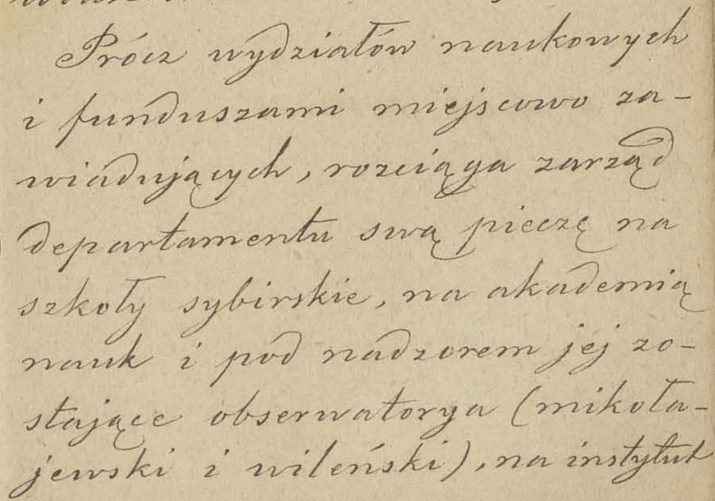 Prócz wydziałów naukowych
i funduszami miejscowo za-
wiadujących, rozciąga zarząd
departamentu swą pieczę na
szkoły sybirskie, na akademią
nauk i pod nadzorem jej zo-
stające obserwatorya (mikoła-
jewski i wileński), na instytut